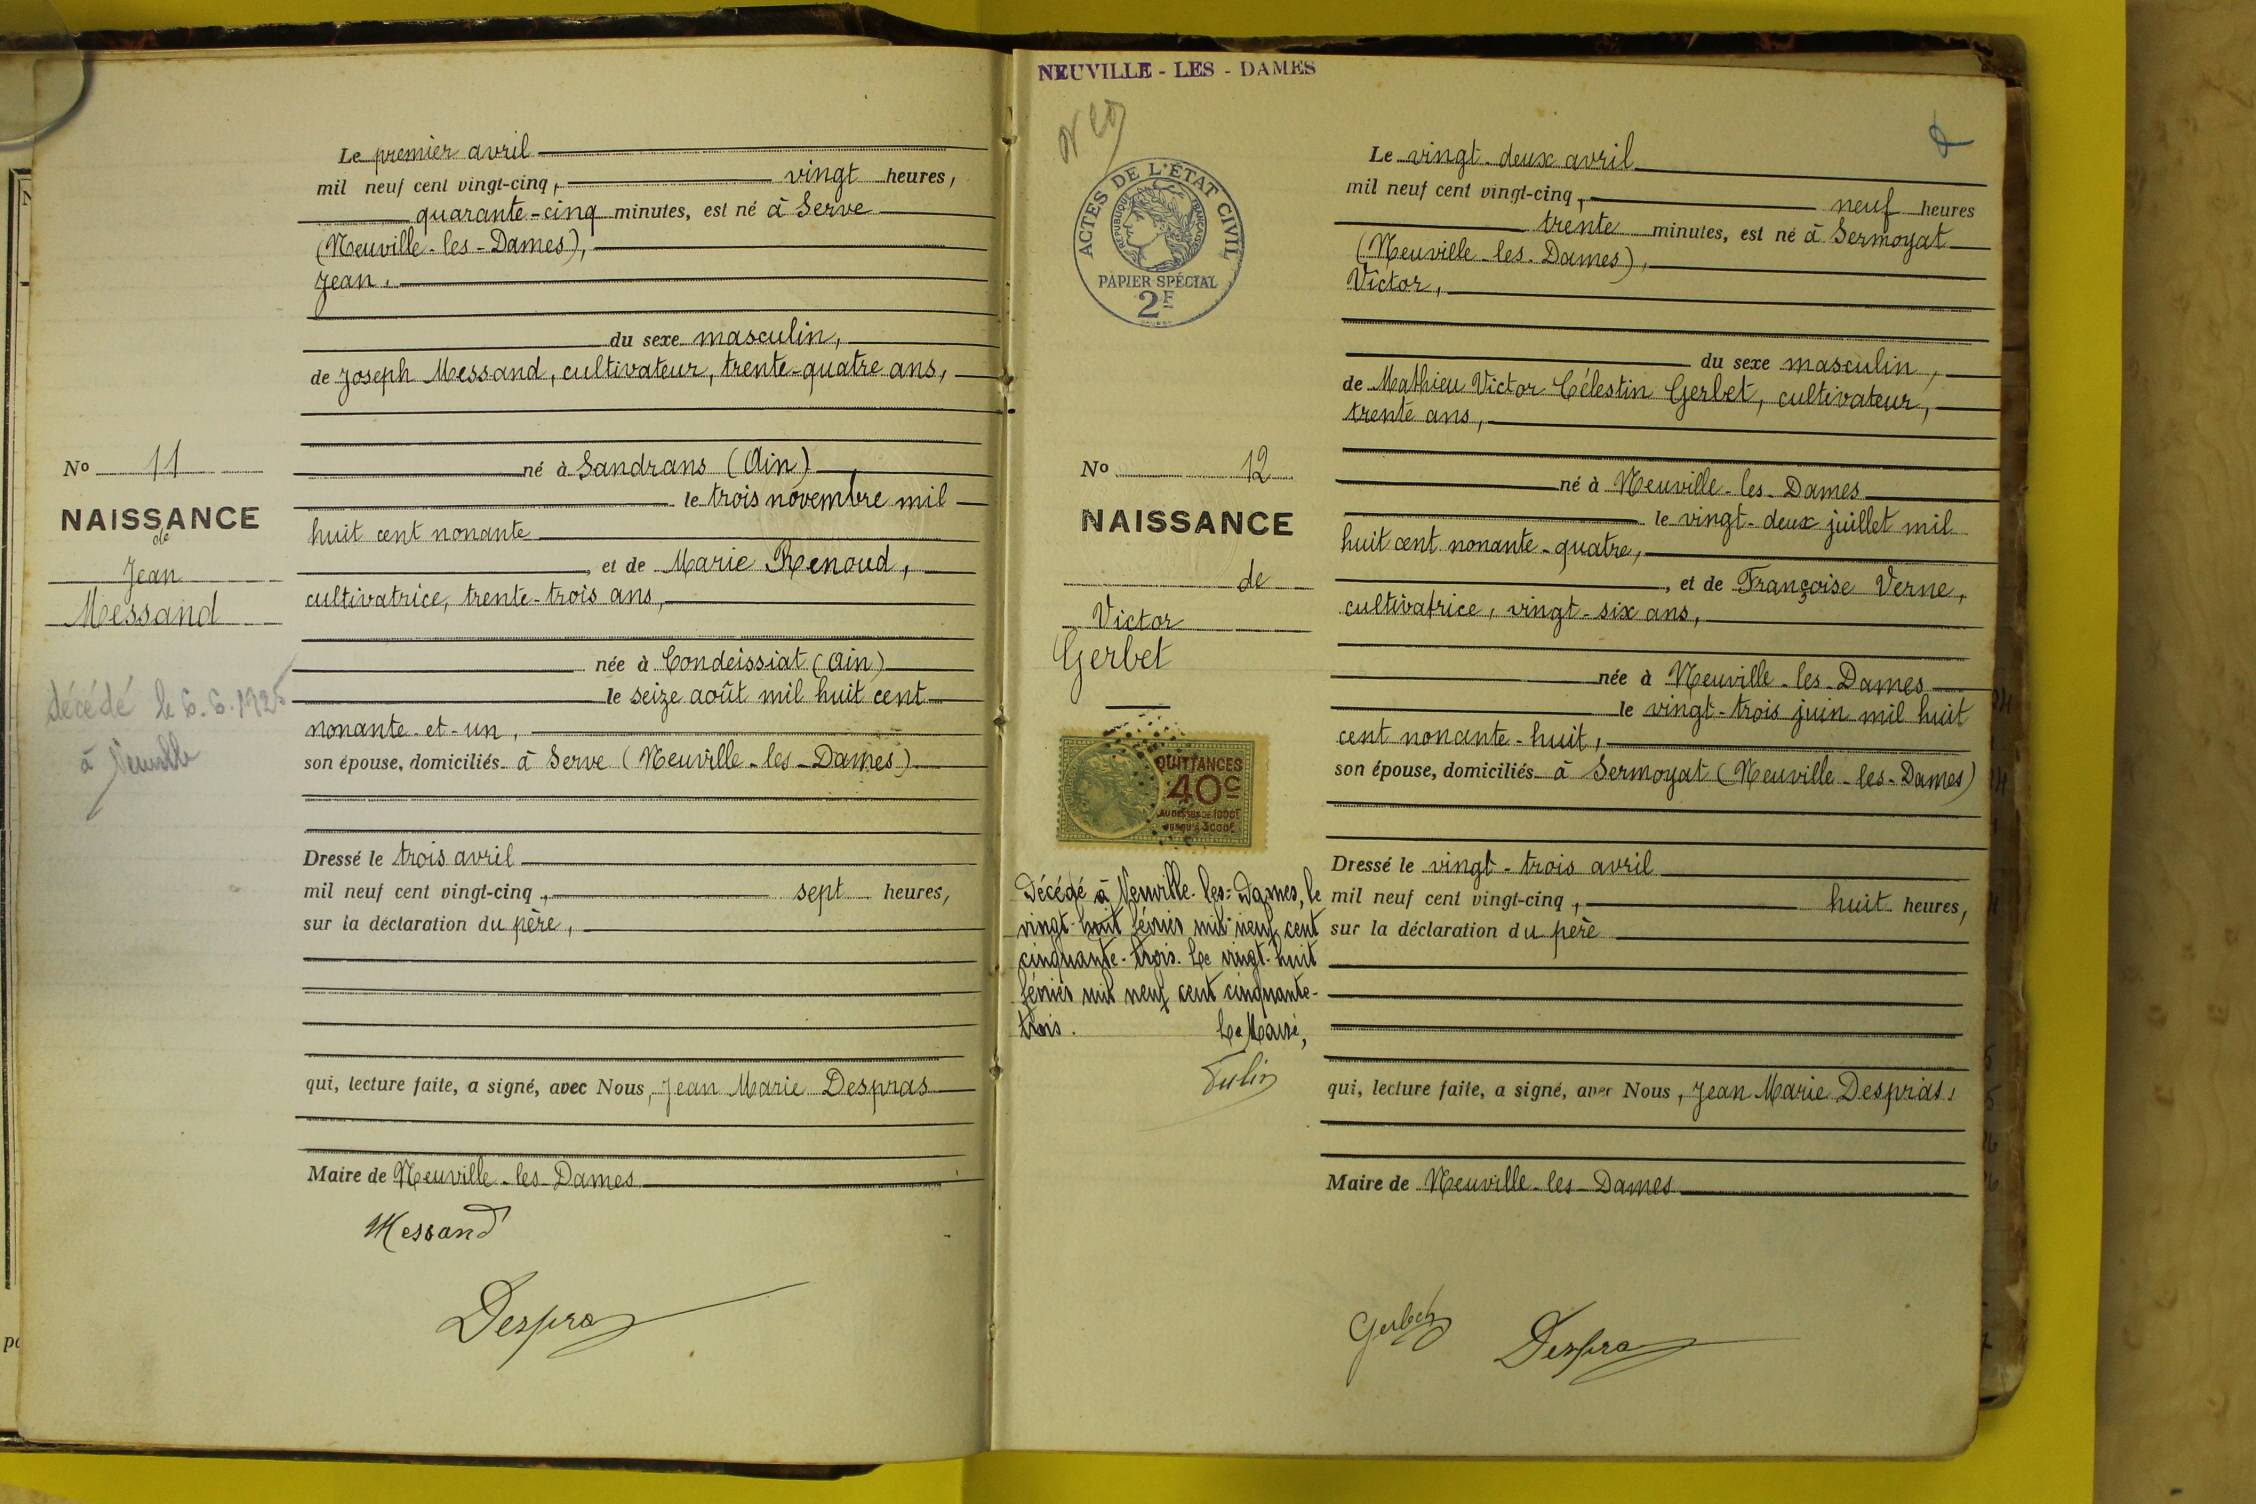 Le premier avril
mil neuf cent vingt-cinq, vingt heures,
quarante-cinq minutes, est né à Serve
(Neuville-les-Dames),
Jean,
du sexe masculin,
de Joseph Messand, cultivateur, trente-quatre ans,
né à Sandrans (Ain)
le trois novembre mil
huit cent nonante
, et de Marie Renoud,
cultivatrice, trente-trois ans,
née à Condeissiat (Ain)
le seize août mil huit cent
nonante-et-un,
son épouse, domiciliés à Serve (Neuville-les-Dames)
Dressé le trois avril
mil neuf cent vingt-cinq, sept heures,
sur la déclaration du père,
qui, lecture faite, a signé, avec Nous, Jean Marie Despras
Maire de Neuville-les-Dames
Messand
Despras
No 11
NAISSANCE
de
Jean
Messand
décédé le 6.6.1925
à Neuville
NEUVILLE - LES - DAMES
ACTES DE L'ÉTAT CIVIL
RÉPUBLIQUE FRANÇAISE
PAPIER SPÉCIAL
2F
No 12
NAISSANCE
de
Victor
Gerbet
QUITTANCES
40c
AU DESSUS DE 1000F
JUSQU'A 3000F
Décédé à Neuville-les-Dames, le
vingt-huit février mil neuf cent
cinquante-trois. Le vingt-huit
février mil neuf cent cinquante-
trois. Le Maire,
Le vingt-deux avril
mil neuf cent vingt-cinq, neuf heures
trente minutes, est né à Sermoyat
(Neuville-les-Dames),
Victor,
du sexe masculin,
de Mathieu Victor Célestin Gerbet, cultivateur,
trente ans,
né à Neuville-les-Dames
le vingt-deux juillet mil
huit cent nonante-quatre,
, et de Françoise Verne,
cultivatrice, vingt-six ans,
née à Neuville-les-Dames
le vingt-trois juin mil huit
cent nonante-huit,
son épouse, domiciliés à Sermoyat (Neuville-les-Dames)
Dressé le vingt-trois avril
mil neuf cent vingt-cinq, huit heures,
sur la déclaration du père
qui, lecture faite, a signé, avec Nous, Jean Marie Despras,
Maire de Neuville-les-Dames
Gerbet
Despras